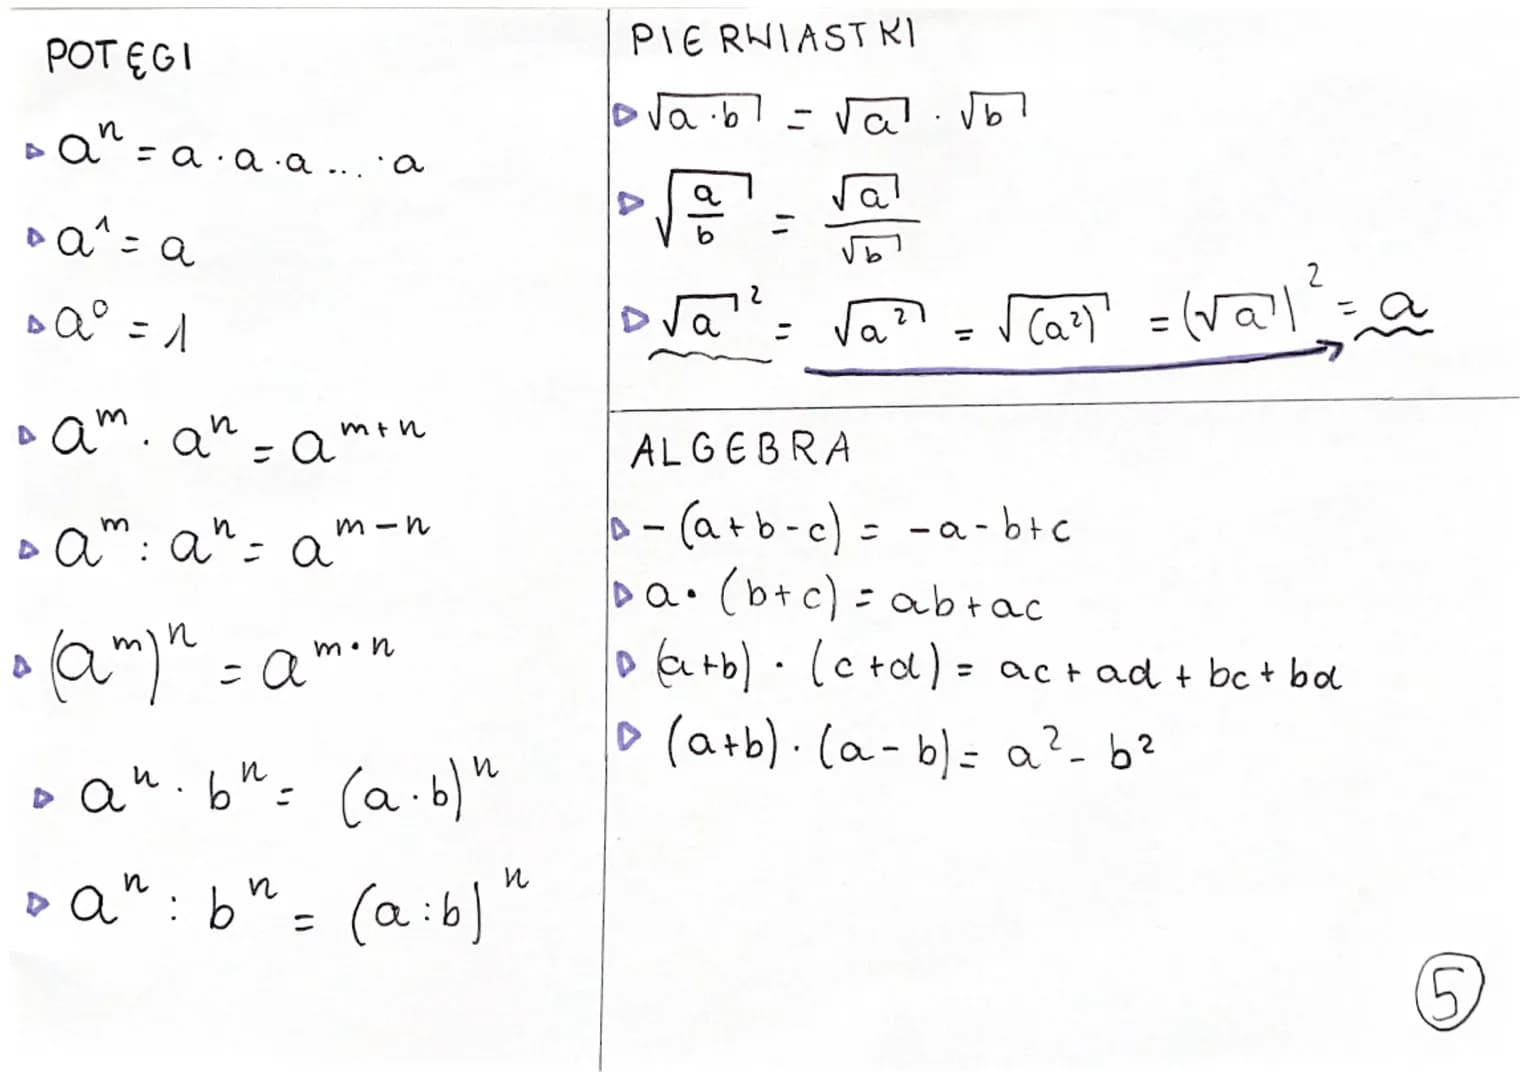 POTĘGI
▷ aⁿ = a · a · a ... · a
▷ a¹ = a
▷ a⁰ = 1
▷ aᵐ · aⁿ = aᵐ⁺ⁿ
▷ aᵐ : aⁿ = aᵐ⁻ⁿ
▷ (aᵐ)ⁿ = a^(m·n)
▷ aⁿ · bⁿ = (a · b)ⁿ
▷ aⁿ : bⁿ = (a : b)ⁿ
PIERWIASTKI
▷ √(a · b) = √a · √b
▷ √(a/b) = √a/√b
▷ √a² = √(a²) = √((a²)) = (√a)² = a
ALGEBRA
▷ -(a+b-c) = -a-b+c
▷ a · (b+c) = ab+ac
▷ (a+b) · (c+d) = ac + ad + bc + bd
▷ (a+b) · (a-b) = a² - b²
5